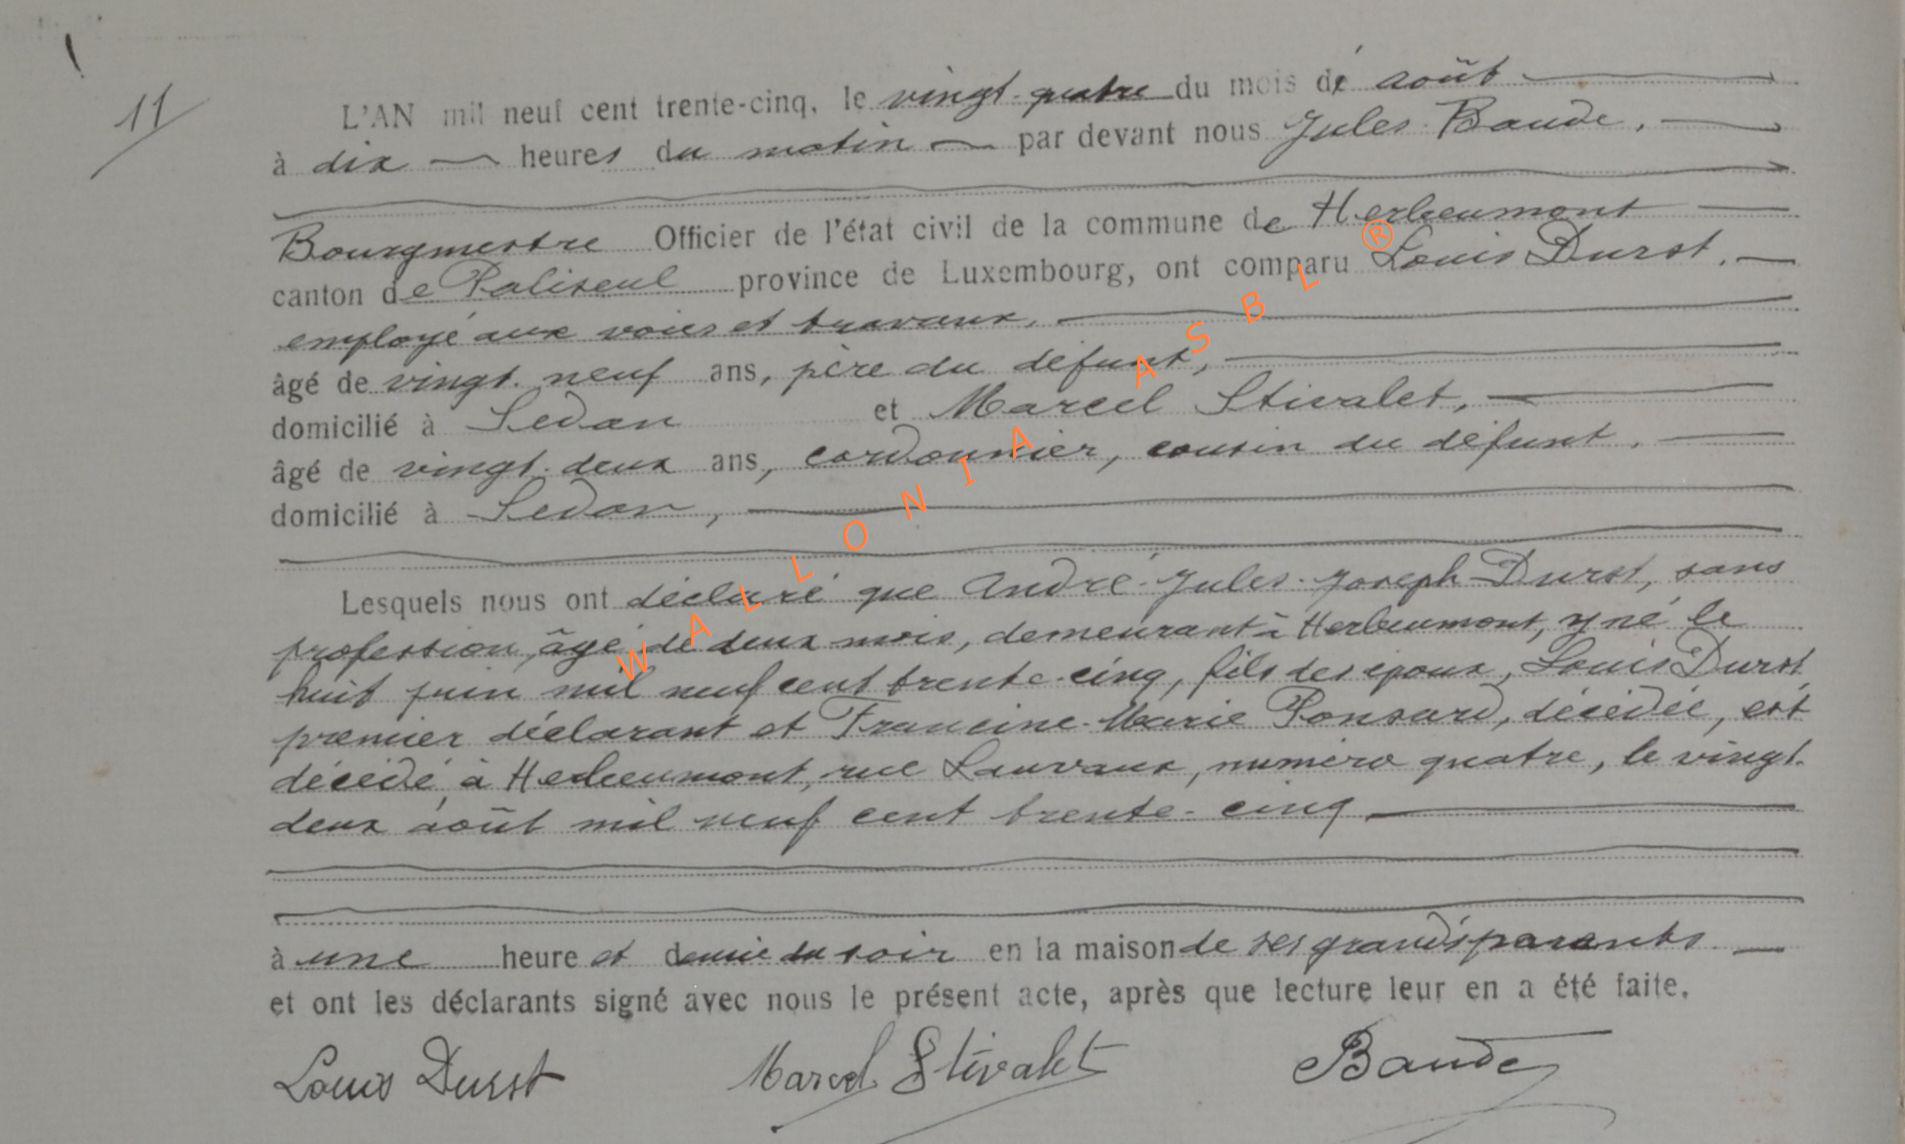 11
L'AN mil neuf cent trente-cinq, le vingt-quatre du mois de août
à dix heures du matin par devant nous Jules Baude,
Bourgmestre Officier de l'état civil de la commune de Herbeumont
canton de Paliseul province de Luxembourg, ont comparu Louis Durst,
employé aux voies et travaux,
âgé de vingt-neuf ans, père du défunt,
domicilié à Sedan et Marcel Stivalet,
âgé de vingt-deux ans, cordonnier, cousin du défunt,
domicilié à Sedan,
Lesquels nous ont déclaré que André-Jules-Joseph Durst, sans
profession, âgé de deux mois, demeurant à Herbeumont, y né le
huit juin mil neuf cent trente-cinq, fils des époux, Louis Durst
premier déclarant et Francine-Marie Ponsard, décédée, est
décédé à Herbeumont, rue Lauvaux, numéro quatre, le vingt-
deux août mil neuf cent trente-cinq
à une heure et demie du soir en la maison de ses grands parents
et ont les déclarants signé avec nous le présent acte, après que lecture leur en a été faite.
Louis Durst Marcel Stivalet Baude
WALLONIA ASBL ®